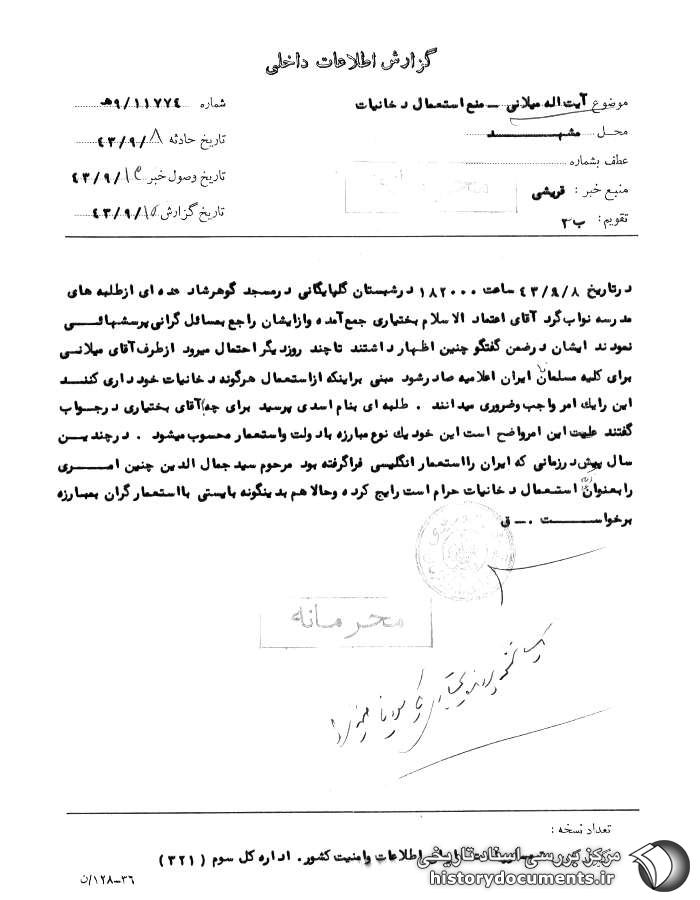 گزارش اطلاعات داخلی
موضوع آیت اله میلانی - منع استعمال دخانیات
شماره ۹/۱۱۷۷۴هـ
محل مشهد
تاریخ حادثه ۴۳/۹/۸
عطف بشماره
تاریخ وصول خبر ۴۳/۹/۱۰
منبع خبر : قریشی
محرمانه
تاریخ گزارش ۴۳/۹/۱۵
تقویم : ب ۳
درتاریخ ۴۳/۹/۸ ساعت ۱۸۲۰۰۰ درشبستان گلپایگانی درمسجد گوهرشاد عده ای ازطلبه های
مدرسه نواب گرد آقای اعتماد الاسلام بختیاری جمع آمده وازایشان راجع بمسائل گرانی پرسشهائی
نمودند ایشان درضمن گفتگو چنین اظهار داشتند تاچند روزدیگر احتمال میرود ازطرف آقای میلانی
برای کلیه مسلمانان ایران اعلامیه صادرشود مبنی براینکه ازاستعمال هرگونه دخانیات خود داری کنند
این رایك امر واجب وضروری میدانند . طلبه ای بنام اسدی پرسید برای چه آقای بختیاری درجواب
گفتند علیت این امرواضح است این خود یك نوع مبارزه بادولت واستعمار محسوب میشود . درچندین
سال پیش درزمانی که ایران رااستعمار انگلیسی فراگرفته بود مرحوم سید جمال الدین چنین امری
رابعنوان اینکه استعمال دخانیات حرام است رایج کرده وحالا هم بدینگونه بایستی بااستعمارگران بمبارزه
برخواست . - ق
محرمانه
تعداد نسخه :
اطلاعات وامنیت کشور . اداره کل سوم (۳۲۱)
۱۲۸-۳۶/ن
مرکز بررسی اسناد تاریخی
historydocuments.ir